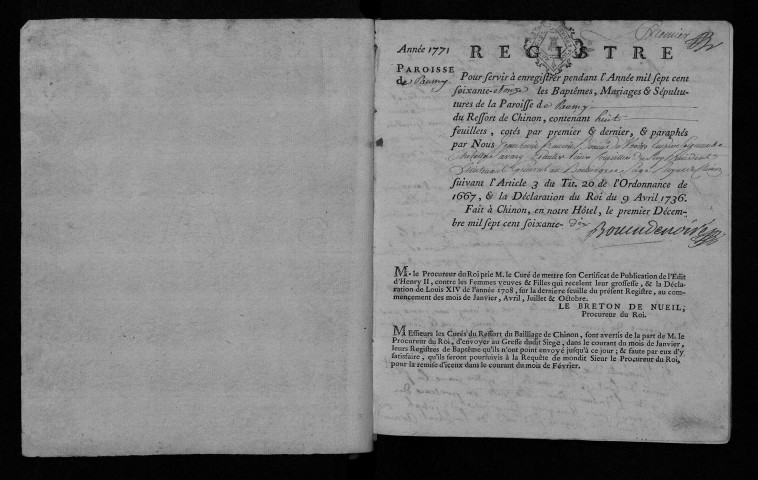 Premier
Année 1771 REGISTRE
PAROISSE
de Paumy
Pour servir à enregistrer pendant l'Année mil sept cent
soixante-et onze les Baptêmes, Mariages & Sépultu-
tures de la Paroisse de Paumy
du Ressort de Chinon, contenant huit
feuillets, cotés par premier & dernier, & paraphés
par Nous
suivant l'Article 3 du Tit. 20 de l'Ordonnance de
1667, & la Déclaration du Roi du 9 Avril 1736.
Fait à Chinon, en notre Hôtel, le premier Décem-
bre mil sept cent soixante-dix
M. le Procureur du Roi prie M. le Curé de mettre son Certificat de Publication de l'Edit
d'Henry II, contre les Femmes veuves & Filles qui recelent leur grossesse, & la Décla-
ration de Louis XIV de l'année 1708, sur la derniere feuille du présent Registre, au com-
mencement des mois de Janvier, Avril, Juillet & Octobre.
LE BRETON DE NUEIL,
Procureur du Roi.
MEssieurs les Curés du Ressort du Bailliage de Chinon, sont avertis de la part de M. le
Procureur du Roi, d'envoyer au Greffe dudit Siége, dans le courant du mois de Janvier,
leurs Registres de Baptême qu'ils n'ont point envoyé jusqu'à ce jour; & faute par eux d'y
satisfaire, qu'ils seront poursuivis à la Requête de mondit Sieur le Procureur du Roi,
pour la remise d'iceux dans le courant du mois de Février.